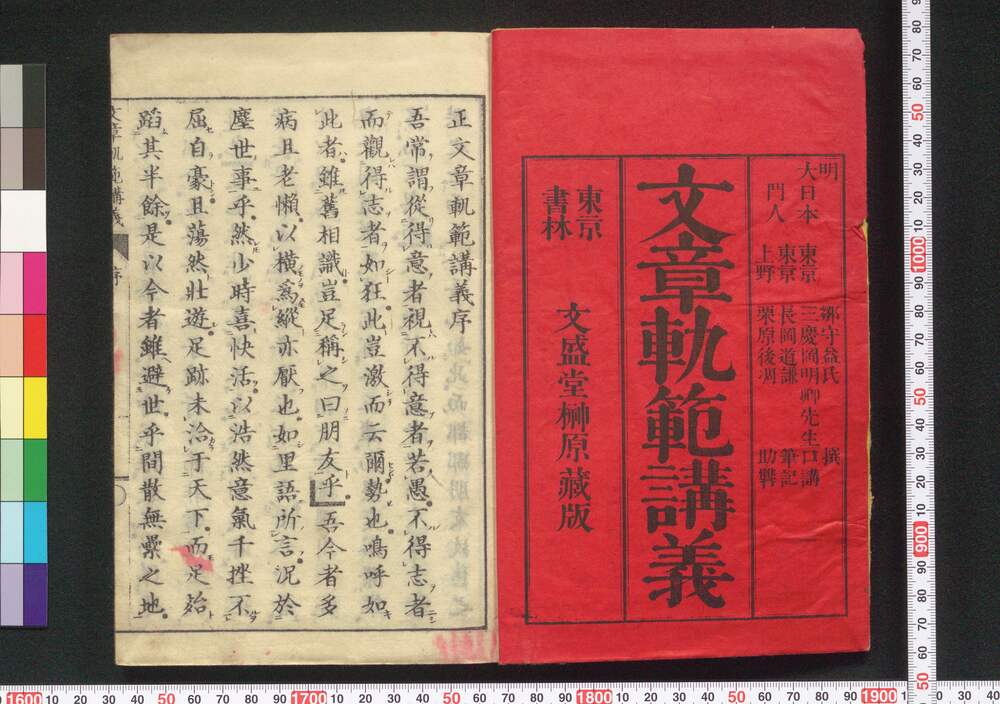 明 鄒守益氏 撰
大日本 東京 三慶岡明卿先生口講
門人 東京 長岡道謙 筆記
上野 栗原後凋 助輯
文章軌範講義
東京書林 文盛堂榊原藏版
正文章軌範講義序
吾常謂從得意者視不得意者若愚不得志者
而觀得志者如狂此豈激而云爾勢也嗚呼如
此者雖舊相識豈足稱之曰朋友乎吾今者多
病且老懶以橫爲縱亦厭也如里語所言況於
塵世事乎然少時喜快活以浩然意氣千挫不
屈自豪且蕩然壯遊足跡未洽于天下而足殆
蹈其半餘是以今者雖避世乎間散無累之地
文章軌範講義 序